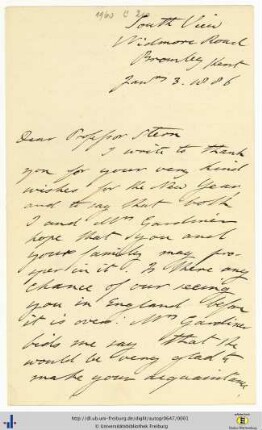 South View
Widmore Road
Bromley Kent
Jany 3. 1886
Dear Professor Stern
I write to thank
you for your very kind
wishes for the New Year,
and to say that both
I and Mrs Gardiner
hope that you and
your family may pros-
per in it. Is there any
chance of our seeing
you in England before
it is over. Mrs Gardiner
bids me say that she
would be very glad to
make your acquaintance
http://dl.ub.uni-freiburg.de/diglit/autogr9647/0001
© Universitätsbibliothek Freiburg